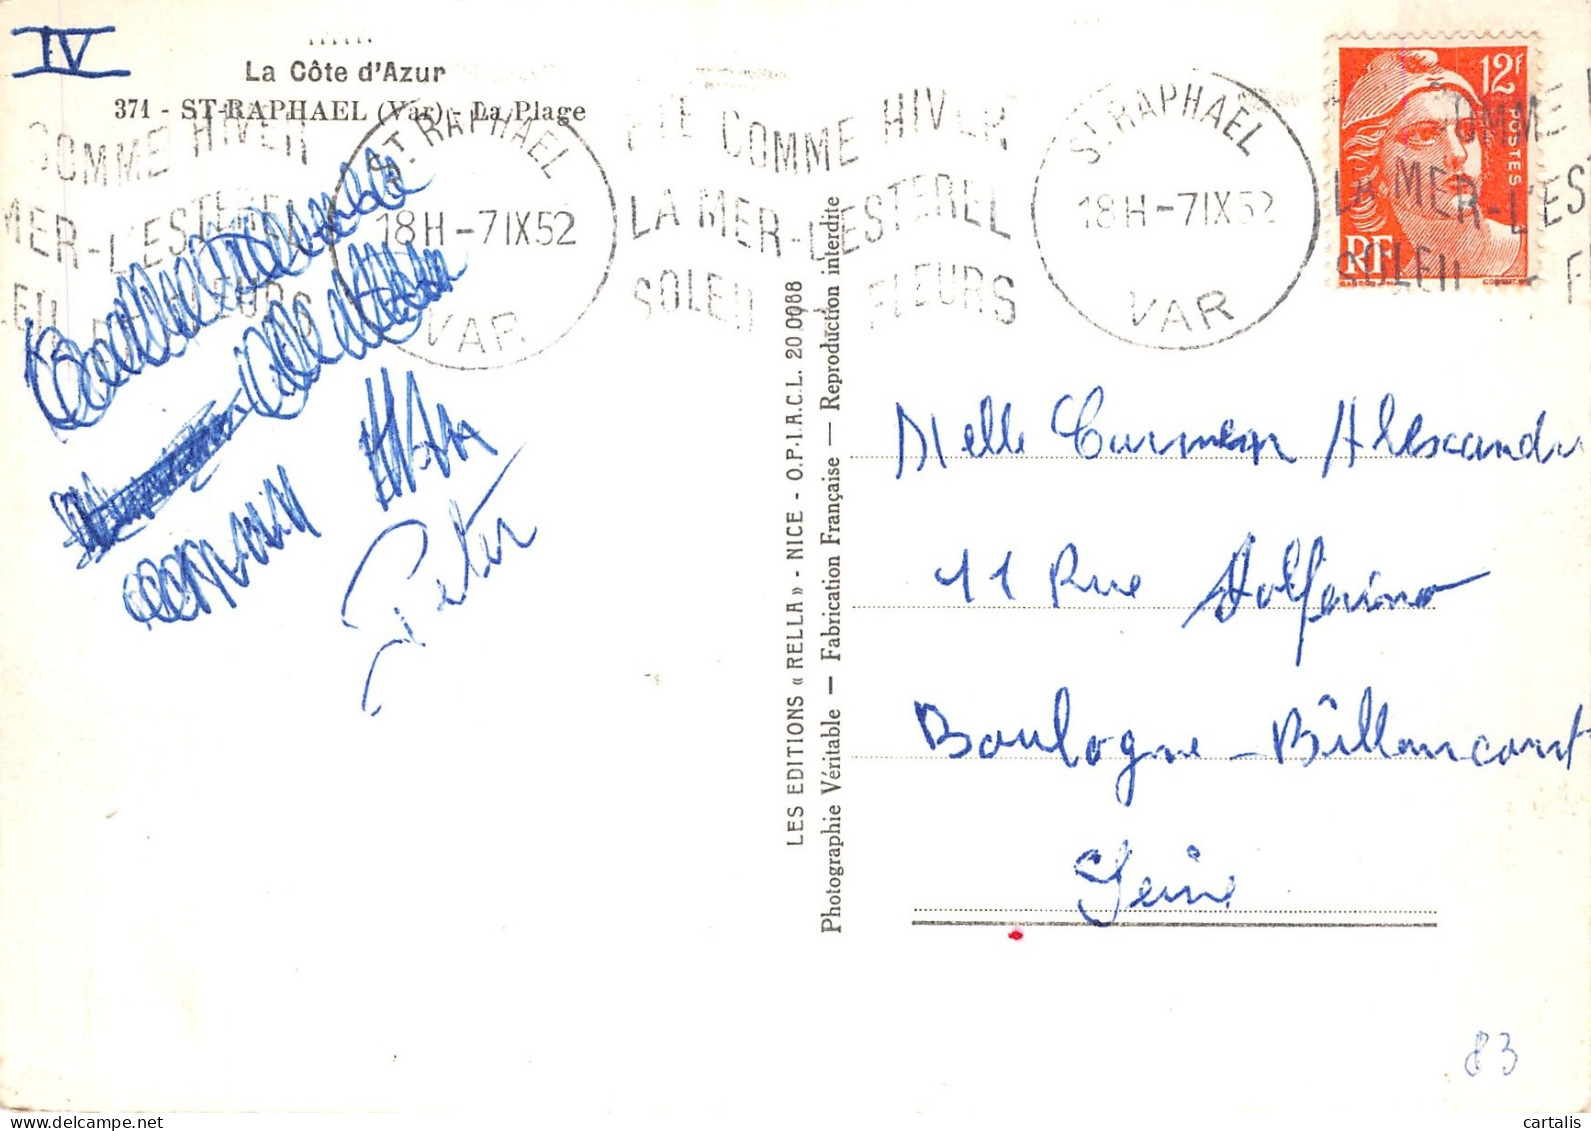 IV
La Côte d'Azur
371 - ST-RAPHAEL (Var) - La Plage
COMME HIVER
MER-L'ESTEREL
SOLEIL FLEURS
ST. RAPHAEL
18H-7IX52
VAR
ETE COMME HIVER
LA MER-L'ESTEREL
SOLEIL FLEURS
ST. RAPHAEL
18H-7IX52
VAR
12F
POSTES
RF
COMME
LA MER-L'ES
SOLEIL - F
Peter
LES EDITIONS « RELLA » - NICE - O.P.I.A.C.L. 20 0068
Photographie Véritable — Fabrication Française — Reproduction interdite
Melle Carmen Alexandr
11 Rue Solferino
Boulogne-Billancourt
Seine
83
cartalis
www.delcampe.net